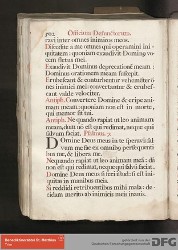 Officium Defunctorum.
ravi inter omnes inimicos meos.
Discedite a me omnes qui operamini ini-
quitatem: quoniam exaudivit Dominus vo-
cem fletus mei.
Exaudivit Dominus deprecationem meam:
Dominus orationem meam suscepit.
Erubescant & conturbentur vehementer o-
mnes inimici mei: convertantur & erubes-
cant valde velociter.
Antiph. Convertere Domine & eripe ani-
mam meam: quoniam non est in morte,
qui memor sit tui.
Antiph. Ne quando rapiat ut leo animam
meam, dum non est qui redimat, neque qui
salvum faciat. Psalmus 7.
Domine Deus meus in te speravi: sal-
vum me fac ex omnibus persequenti-
bus me, & libera me.
Nequando rapiat ut leo animam meam: dum
non est qui redimat, neque qui salvum faciat.
Domine Deus meus si feci istud: si est ini-
quitas in manibus meis.
Si reddidi retribuentibus mihi mala: de-
cidam merito ab inimicis meis inanis.
DFG